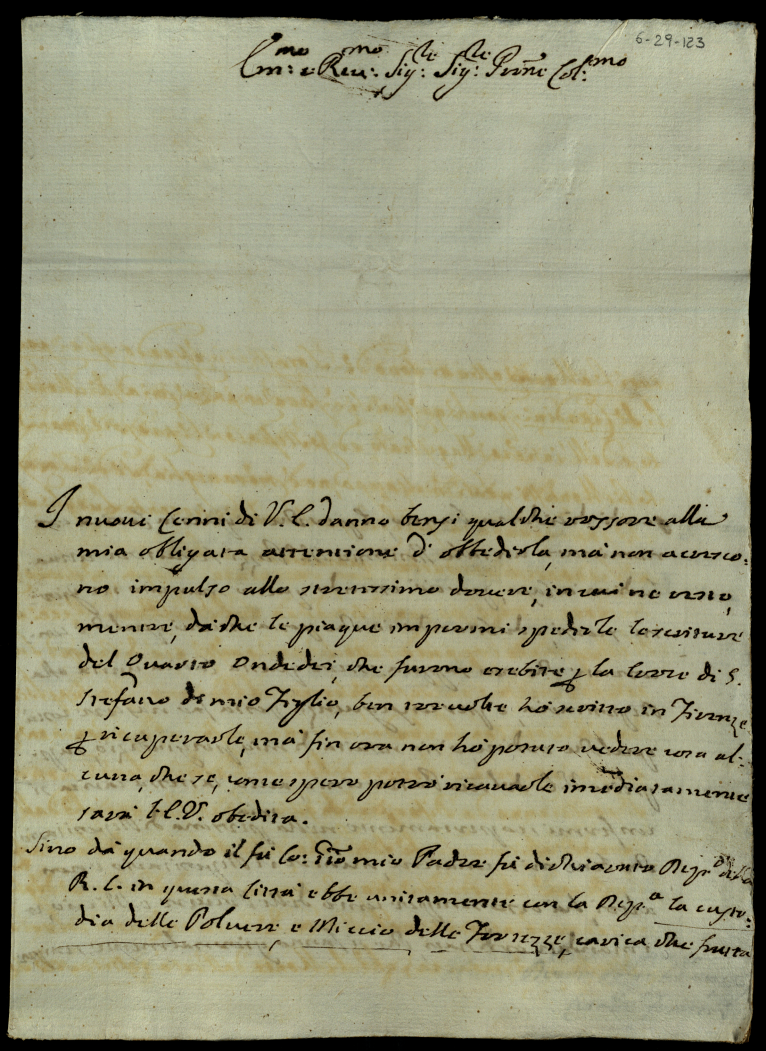 6-29-123
Em:mo e Reu:mo Sig:re Sig:re Prōne Col:mo
I nuoui Cenni di V. E. danno bensi qualche rossore alla
mia obligata attenzione d'obbedirla, mà non accresco-
no impulso allo strettissimo douere, in cui ne resto,
mentre, dà che le piaque impormi spedirle le scritture
del Quarto Ondedei, che furno esebite p la Croce di S.
Stefano di mio Figlio, ben tre uolte hò scritto in Firenze
p ricuperarle, mà fin ora non hò potuto uedere cosa al-
cuna, che se, come spero potrò ricauarle imediatamente
sarà l'E. V. obedita.
Sino dà quando il fù Co: mio Padre fù dichiarato Dep:o della
R. C. in questa Città ebbe unitamente con la Dep:a la custo-
dia delle Poluere, e Miccio delle Fortezze, carica che frutta